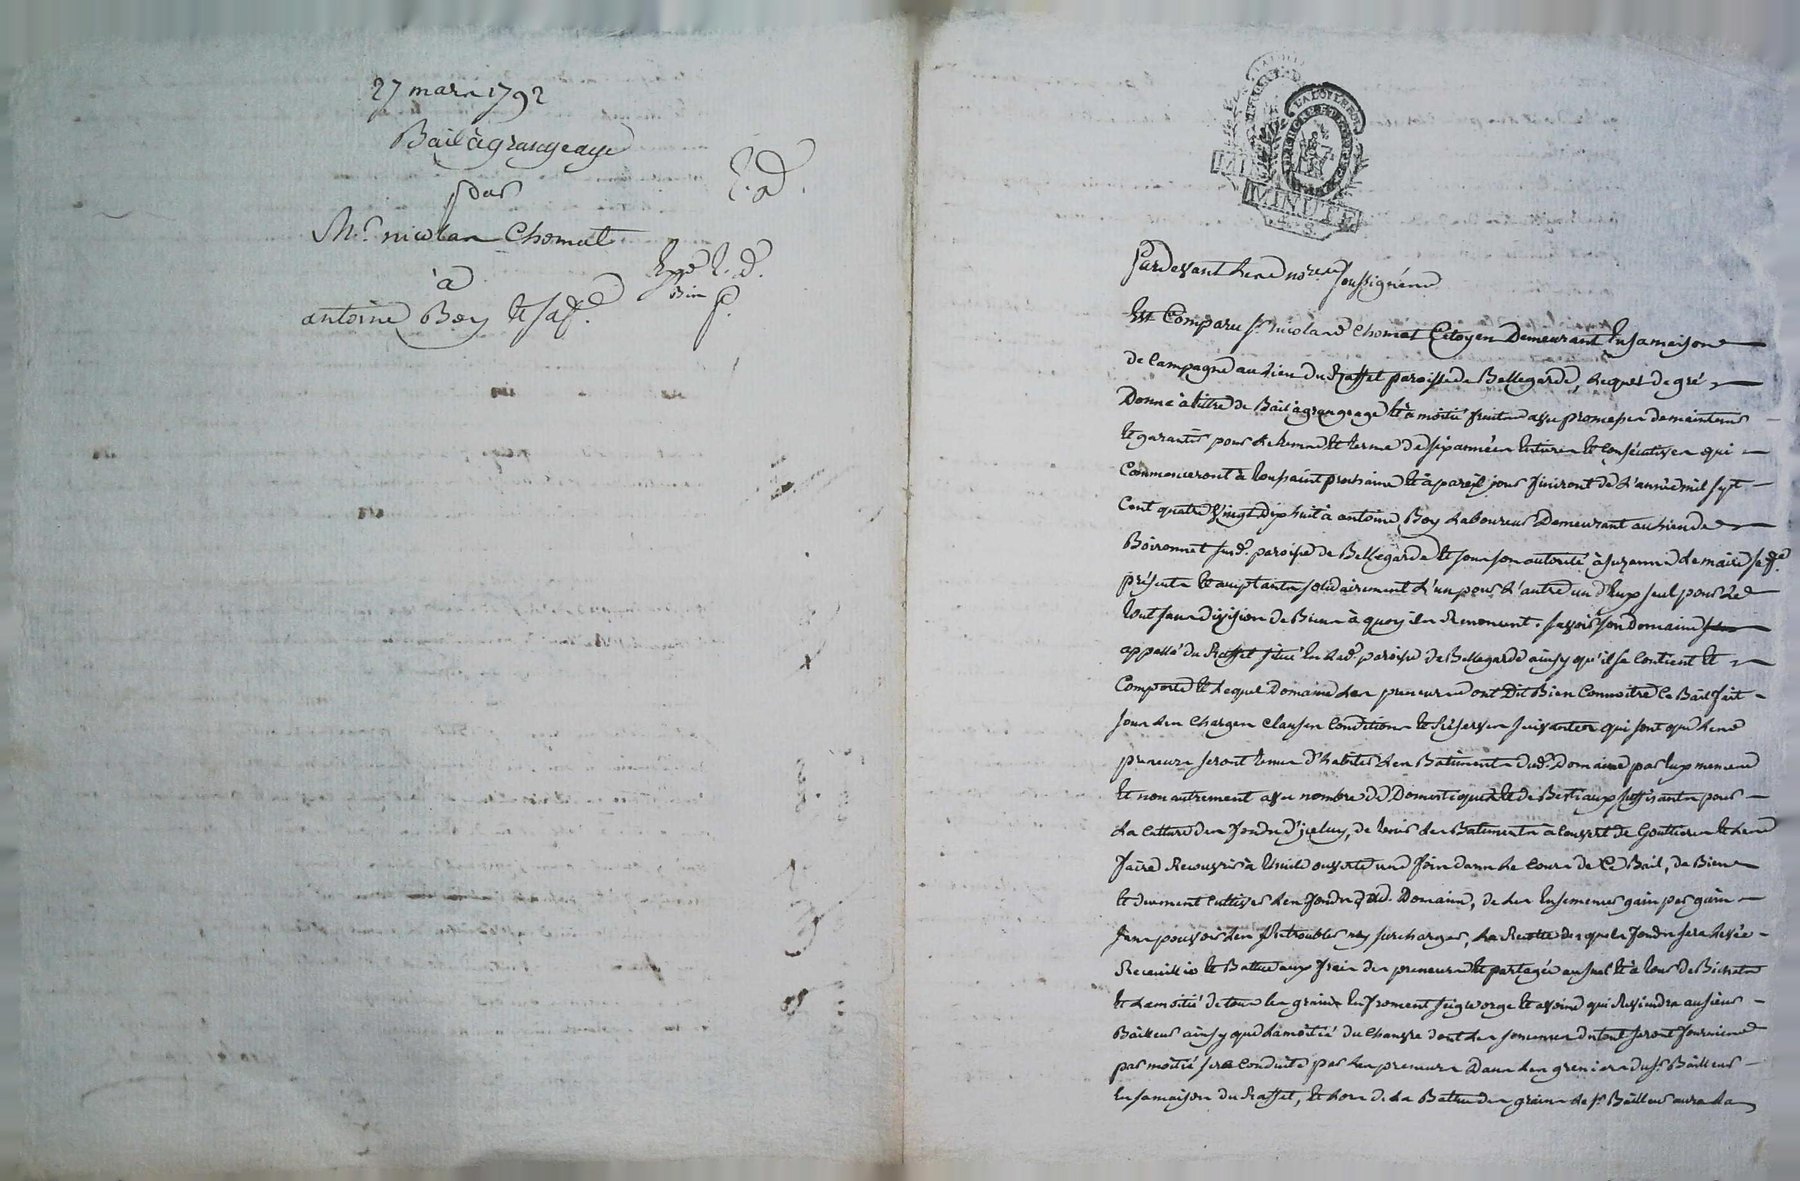 27 mars 1792
Bail à grangeage
par
Mr. nicolas Chomat
à
antoine Boy et sa fe.
Expé
LA LOI LE ROI
MINUTE
4. S.
Pardevant les nores soussignés
Est Comparu sr. nicolas Chomat Citoyen Demeurant En sa maison
de Campagne au Lieu du Raffet paroisse de Bellegarde, Lequel de gré
Donne à titre de Bail à grangeage Et à moitié fruits avec promesse de maintenir
Et garantir pour Le tems Et terme de six années Entieres Et Consécutives qui
Commenceront à toussaint prochaine Et à pareil jour finiront de L'année mil sept
Cent quatre Vingt Dix huit à antoine Boy Laboureur Demeurant au Lieu de
Boironnet susd. paroisse de Bellegarde Et sous son autorité à suzanne Lemaire sa fe.
présents Et acceptants solidairement L'un pour L'autre un d'Eux seul pour Le
tout sans division de Biens à quoy ils Renoncent. savoir son Domaine
appellé du Raffet situé En Lad. paroisse de Bellegarde ainsy qu'il se Contient Et
Comporte Et Lequel Domaine Les preneurs ont Dit Bien Connoitre Ce Bail fait
sous Les Charges Clauses Conditions Et Réserves suivantes qui sont que Les
preneurs seront tenus d'habiter Les Batiments dud. Domaine par Eux memes
Et non autrement avec nombre de Domestiques Et de Bestiaux suffisants pour
La Culture des fonds d'jceluy, de tenir Les Batiments à Couvert de Gouttieres Et Les
faire Recouvrir à tuile ouverte une fois dans Le Cours de Ce Bail, de Bien
Et duement Cultiver Les fonds dud. Domaine, de Les Ensemencer gain par gain
sans pouvoir Les Retroubler ny surcharger, La Recolte des quels fonds sera Levée
Recueillie Et Battue aux frais des preneurs Et partagée au suel Et à tour de Bichets
Et La moitié de tous Les grains En froment seigle orge Et avoine qui Reviendra au sieur
Bailleur ainsy que La moitié du Chanvre dont Les semences du tout seront fournies
par moitié sera Conduite par Les preneurs Dans Les greniers du sr. Bailleur
En sa maison du Raffet, Et Lors de La Battue des grains Le sr. Bailleur aura La